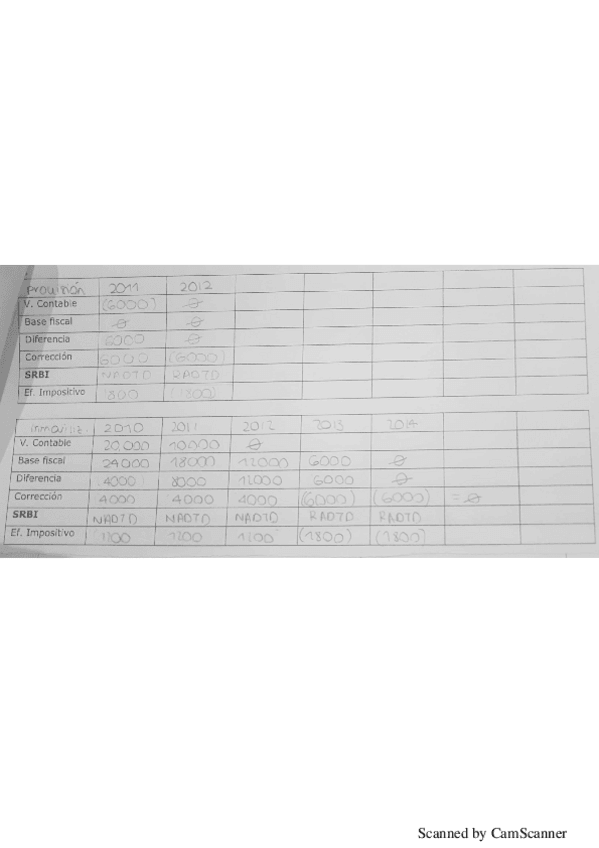 Provisión 2011 2012
V. Contable (6000) ∅
Base fiscal ∅ ∅
Diferencia 6000 ∅
Corrección 6000 (6000)
SRBI NADTD RADTD
Ef. Impositivo 1800 (1800)
2010 2011 2012 2013 2014
V. Contable 20.000 10000 ∅
Base fiscal 24000 18000 12000 6000 ∅
Diferencia 4000 8000 12000 6000 ∅
Corrección 4000 4000 4000 (6000) (6000) = ∅
SRBI NADTD NADTD NADTD RADTD RADTD
Ef. Impositivo 1200 1200 1200 (1800) (1800)
Scanned by CamScanner